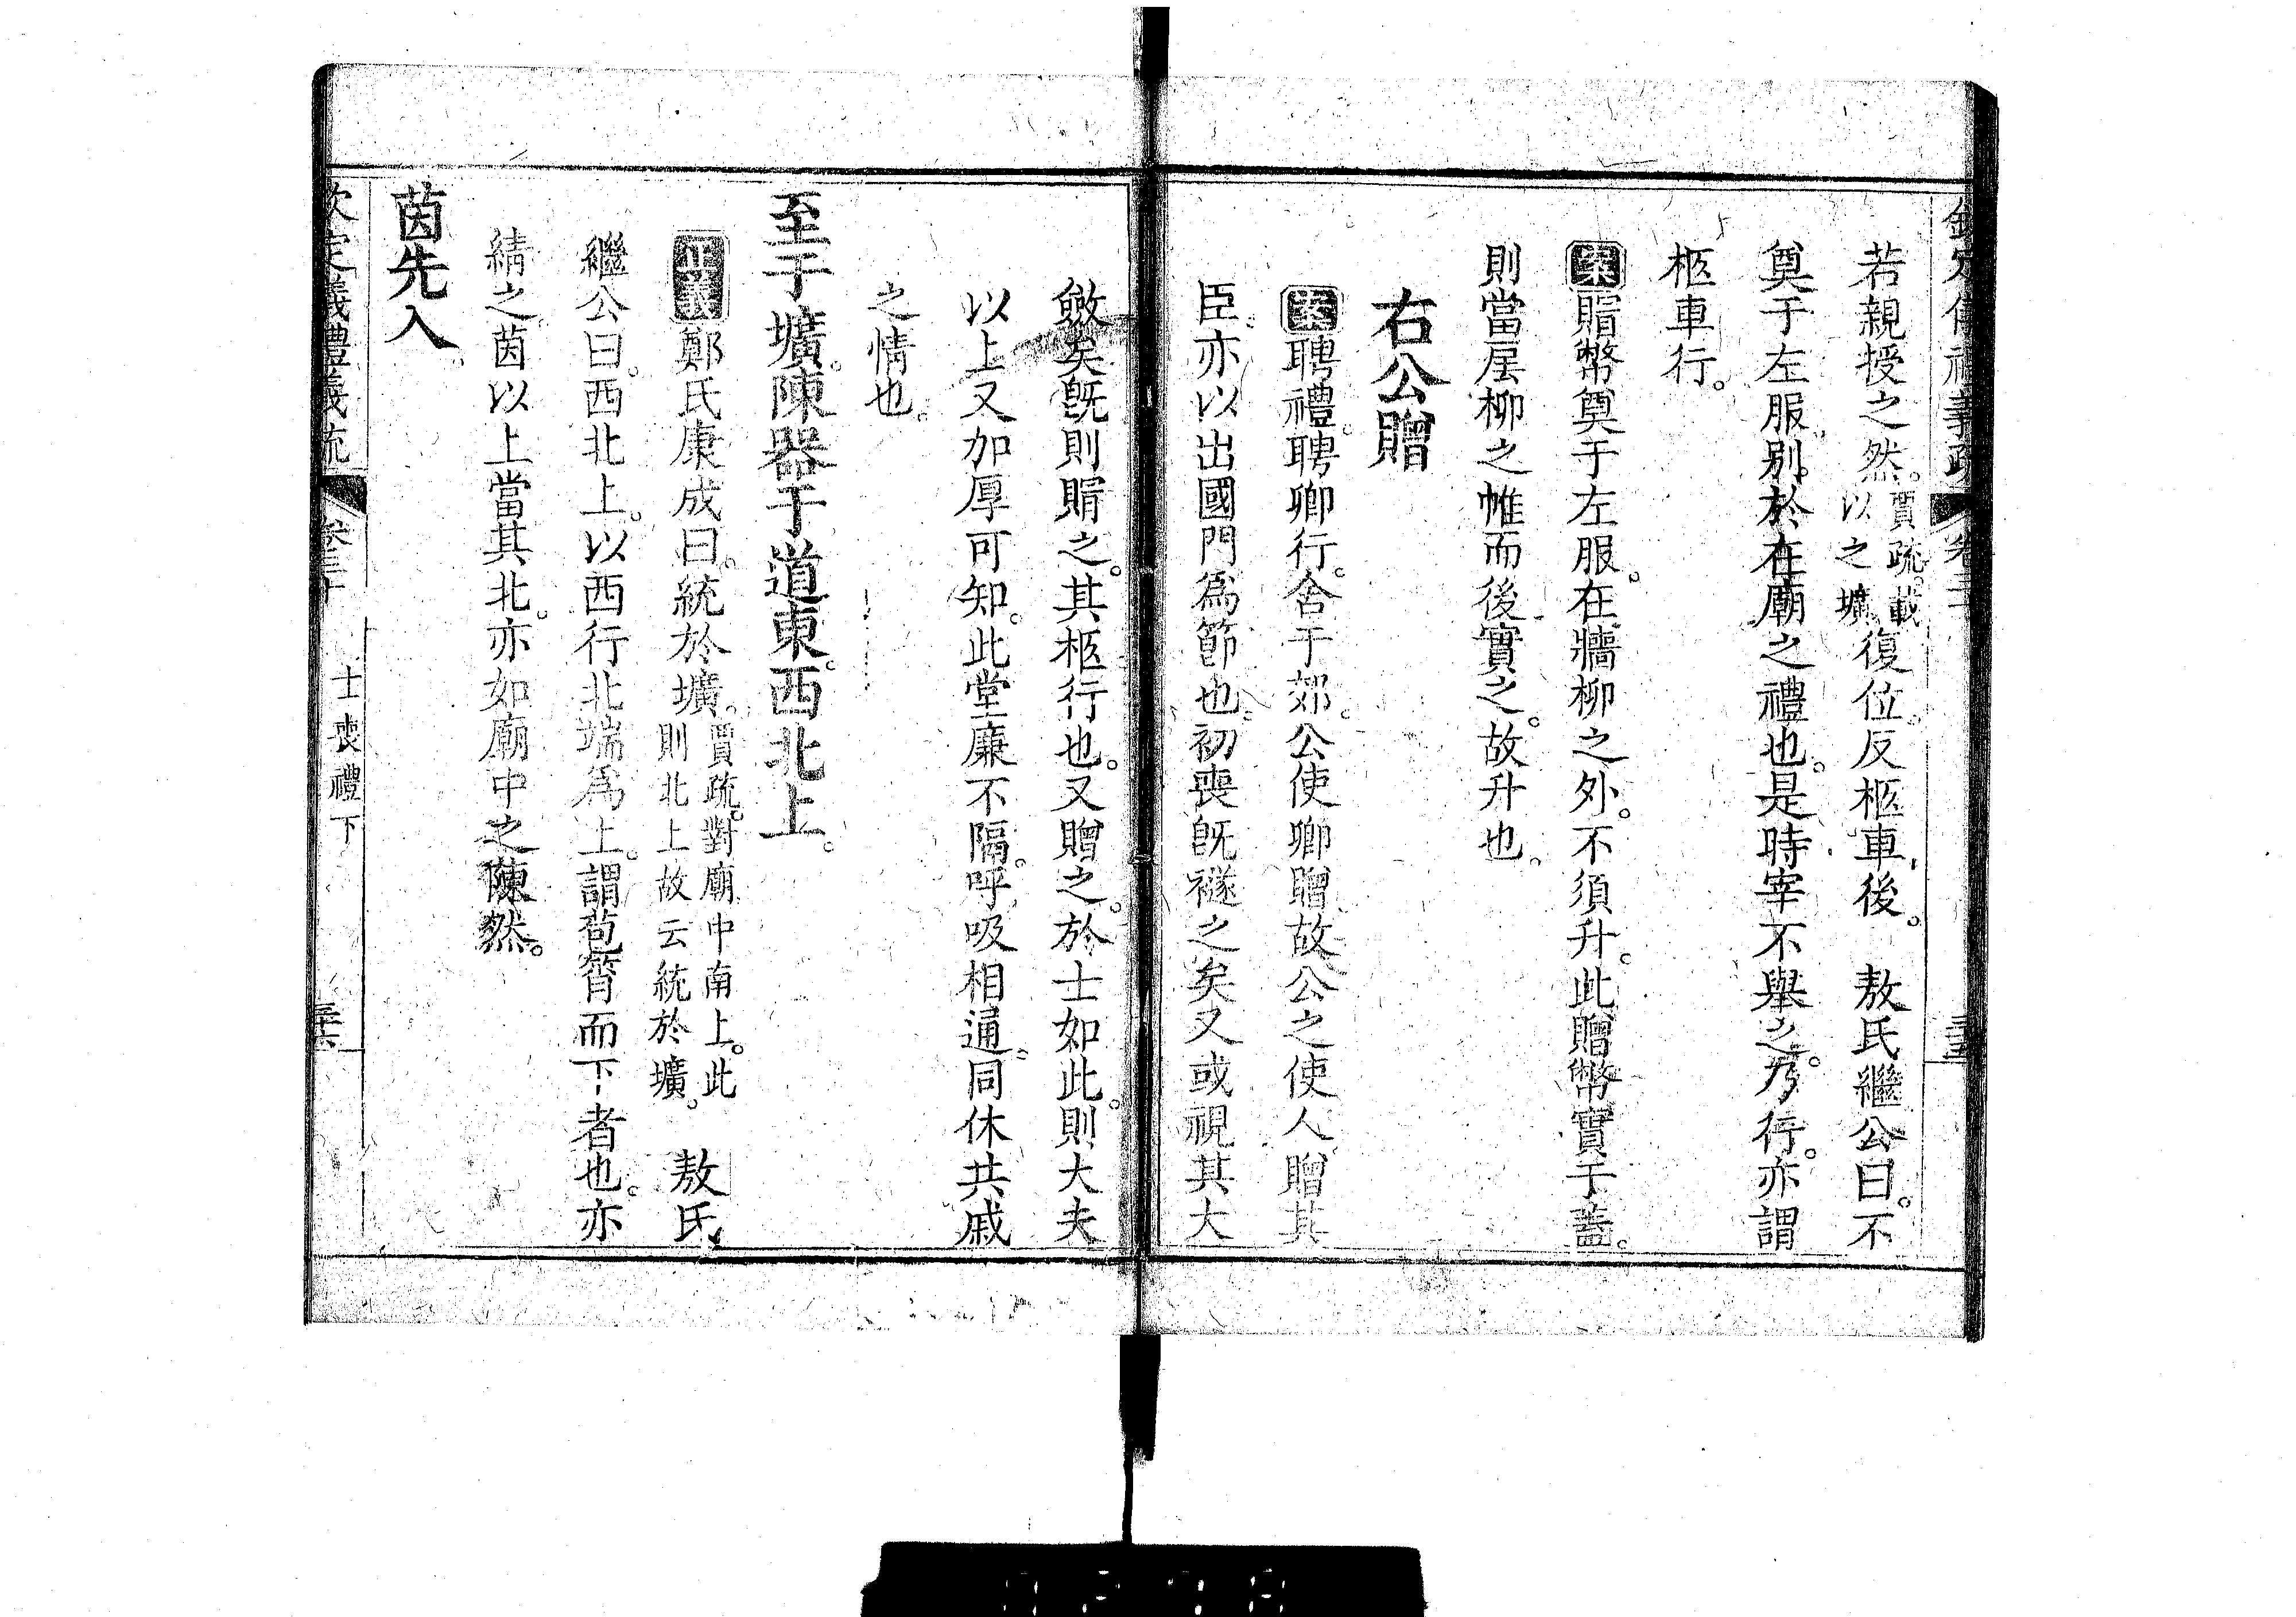 欽定儀禮義疏 卷三十 三五
若親授之然。賈疏。載以之壙。復位。反柩車後。 敖氏繼公曰。不
奠于左服。别於在廟之禮也。是時宰不舉之。乃行。亦謂
柩車行。
案 賵幣奠于左服。在牆柳之外。不須升。此贈幣實于蓋。
則當居柳之帷而後實之。故升也。
右公贈
案 聘禮。聘卿行。舍于郊。公使卿贈。故公之使人贈其
臣。亦以出國門爲節也。初喪旣襚之矣。又或視其大
斂矣。旣則賵之。其柩行也。又贈之。於士如此。則大夫
以上又加厚可知。此堂廉不隔。呼吸相通。同休共戚
之情也。
至于壙。陳器于道東。西北上。
正義 鄭氏康成曰。統於壙。賈疏。對廟中南上。此則北上。故云統於壙。 敖氏
繼公曰。西北上。以西行北端爲上。謂苞筲而下者也。亦
綪之。茵以上當其北。亦如廟中之陳然。
茵先入。
欽定儀禮義疏 卷三十 士喪禮下 三六